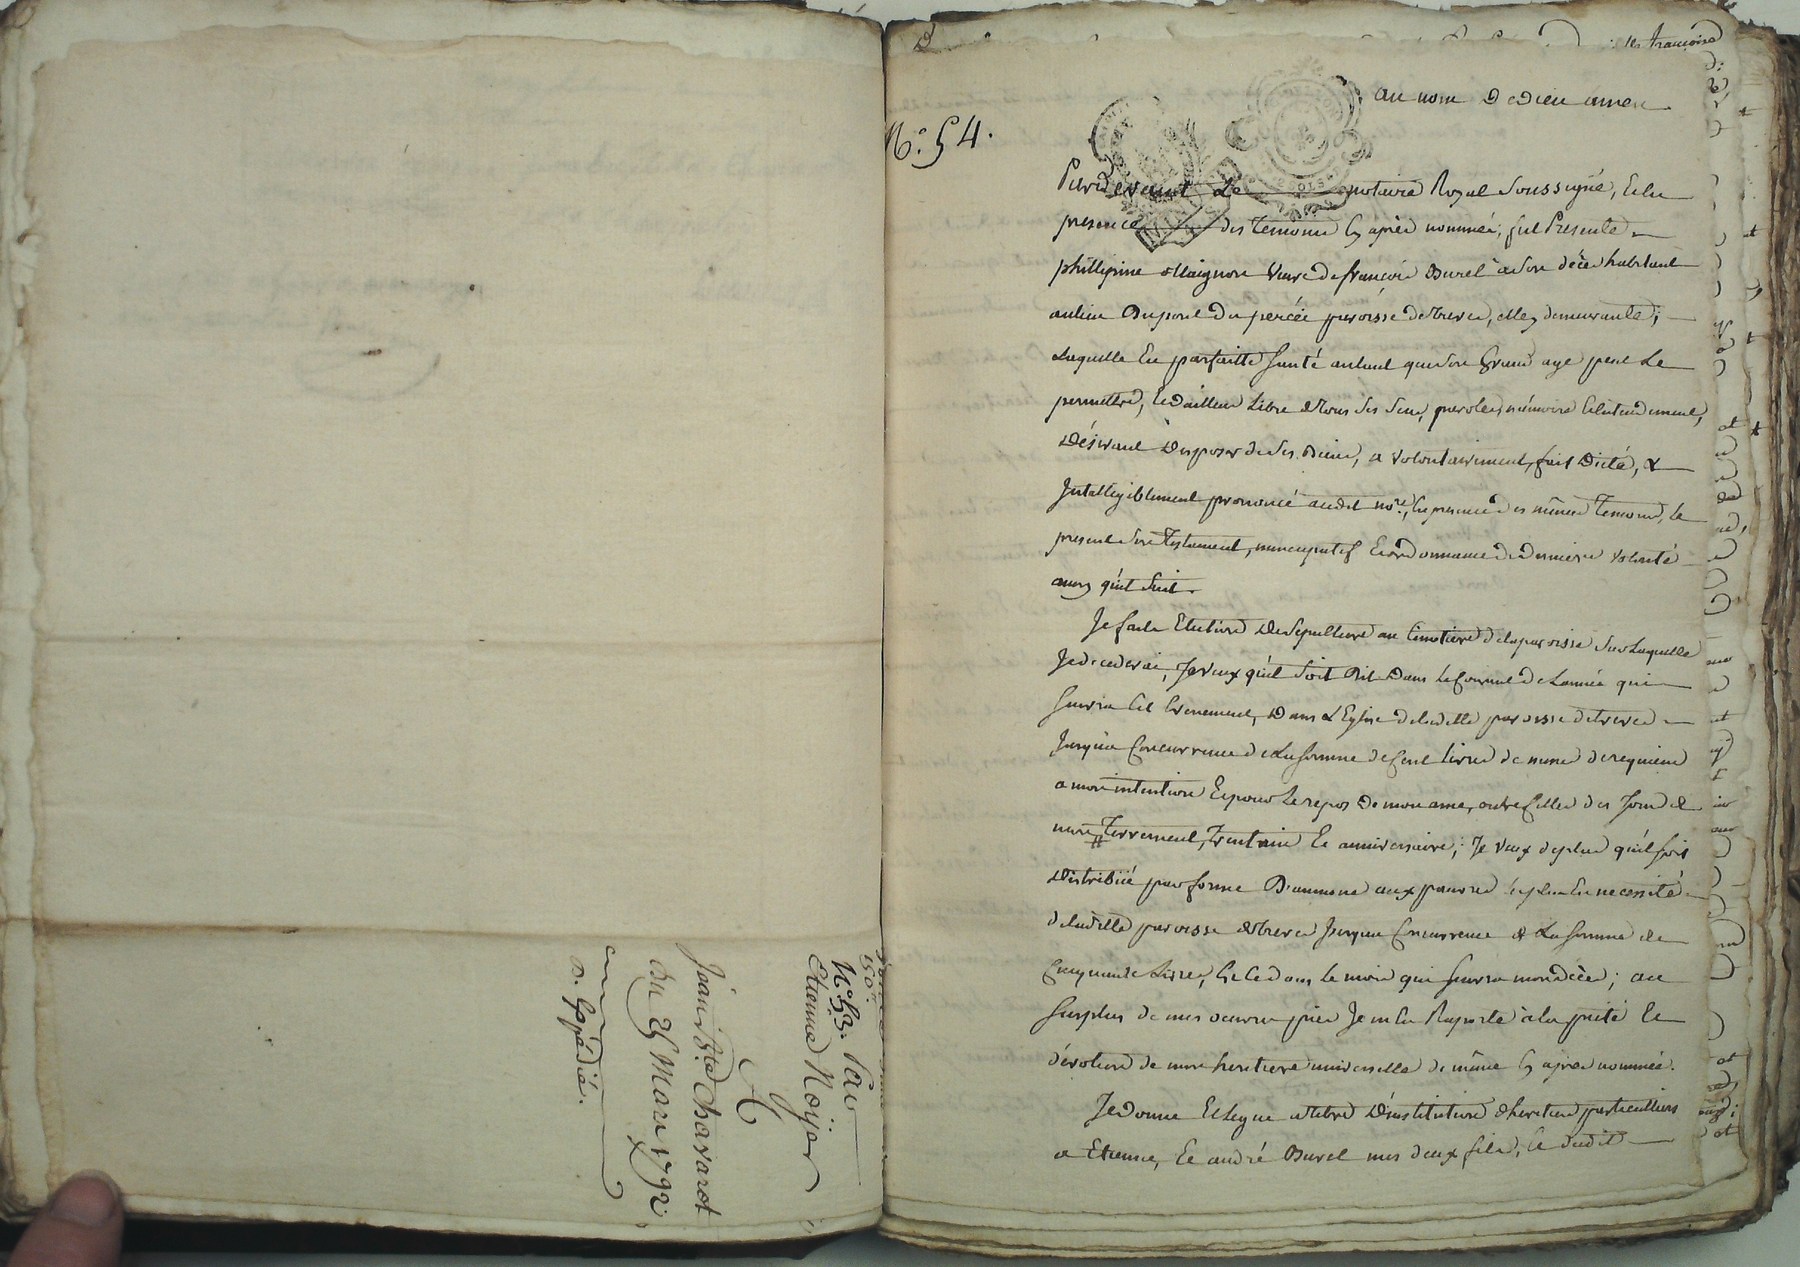 150.tt
N.° 53. Pour
Etienne Noijer
A
Jean B.te Chavarot
Du 25 Mars 1792
D. Expédié.
au nom De dieu amen
N.° 54.
Pardevant Le notaire Royal Soussigné, Et en
presence des temoins Cy après nommés, fut Presente
phillipine Maignon veuve de françois Burel a son décès habitant
au lieu Du pont Du percée paroisse de treve, elle y demeurante;
Laquelle En parfaitte Santé autant que son Grand age peut Le
permettre, Et d'ailleur Libre de tous Ses Sens, parole, mémoire Et entendement,
Désirant Disposer de Ses Biens, a volontairement fait Dicté, &
Intelligiblement prononcé audit no.re, En presence des mêmes temoins, Le
present Son testament, nuncupatif Et ordonnance de derniere volonté
ainsy qu'il Suit.
Je fais Election De Sepulture au Cimetiere de la paroisse Sur Laquelle
Je decederai, Je veux qu'il Soit Dit Dans le Courant de L'année qui
Suivra Cet Evenement, Dans L'Eglise de ladite paroisse de treve
Jusqu'a Concurrence de La Somme de Cent livres de messes de requiem
a mon intention Et pour Le repos De mon ame, outre Celles des Jours de
mon Enterrement, trentain Et anniversaire; Je veux de plus qu'il soit
Distribué par forme D'aumone aux pauvres les plus En necessité
de ladite paroisse de treve Jusqu'a Concurrence de La Somme de
Cinquante Livres, Et Ce dans le mois qui Suivra mon décès; au
Surplus de mes oeuvres pies Je m'en Raporte à la pieté Et
dévotion de mon heritiere universelle de même Cy après nommée.
Je donne Et legue a titre D'institution d'heritiers particulliers
a Etienne, Et andré Burel mes deux fils, Et dudit